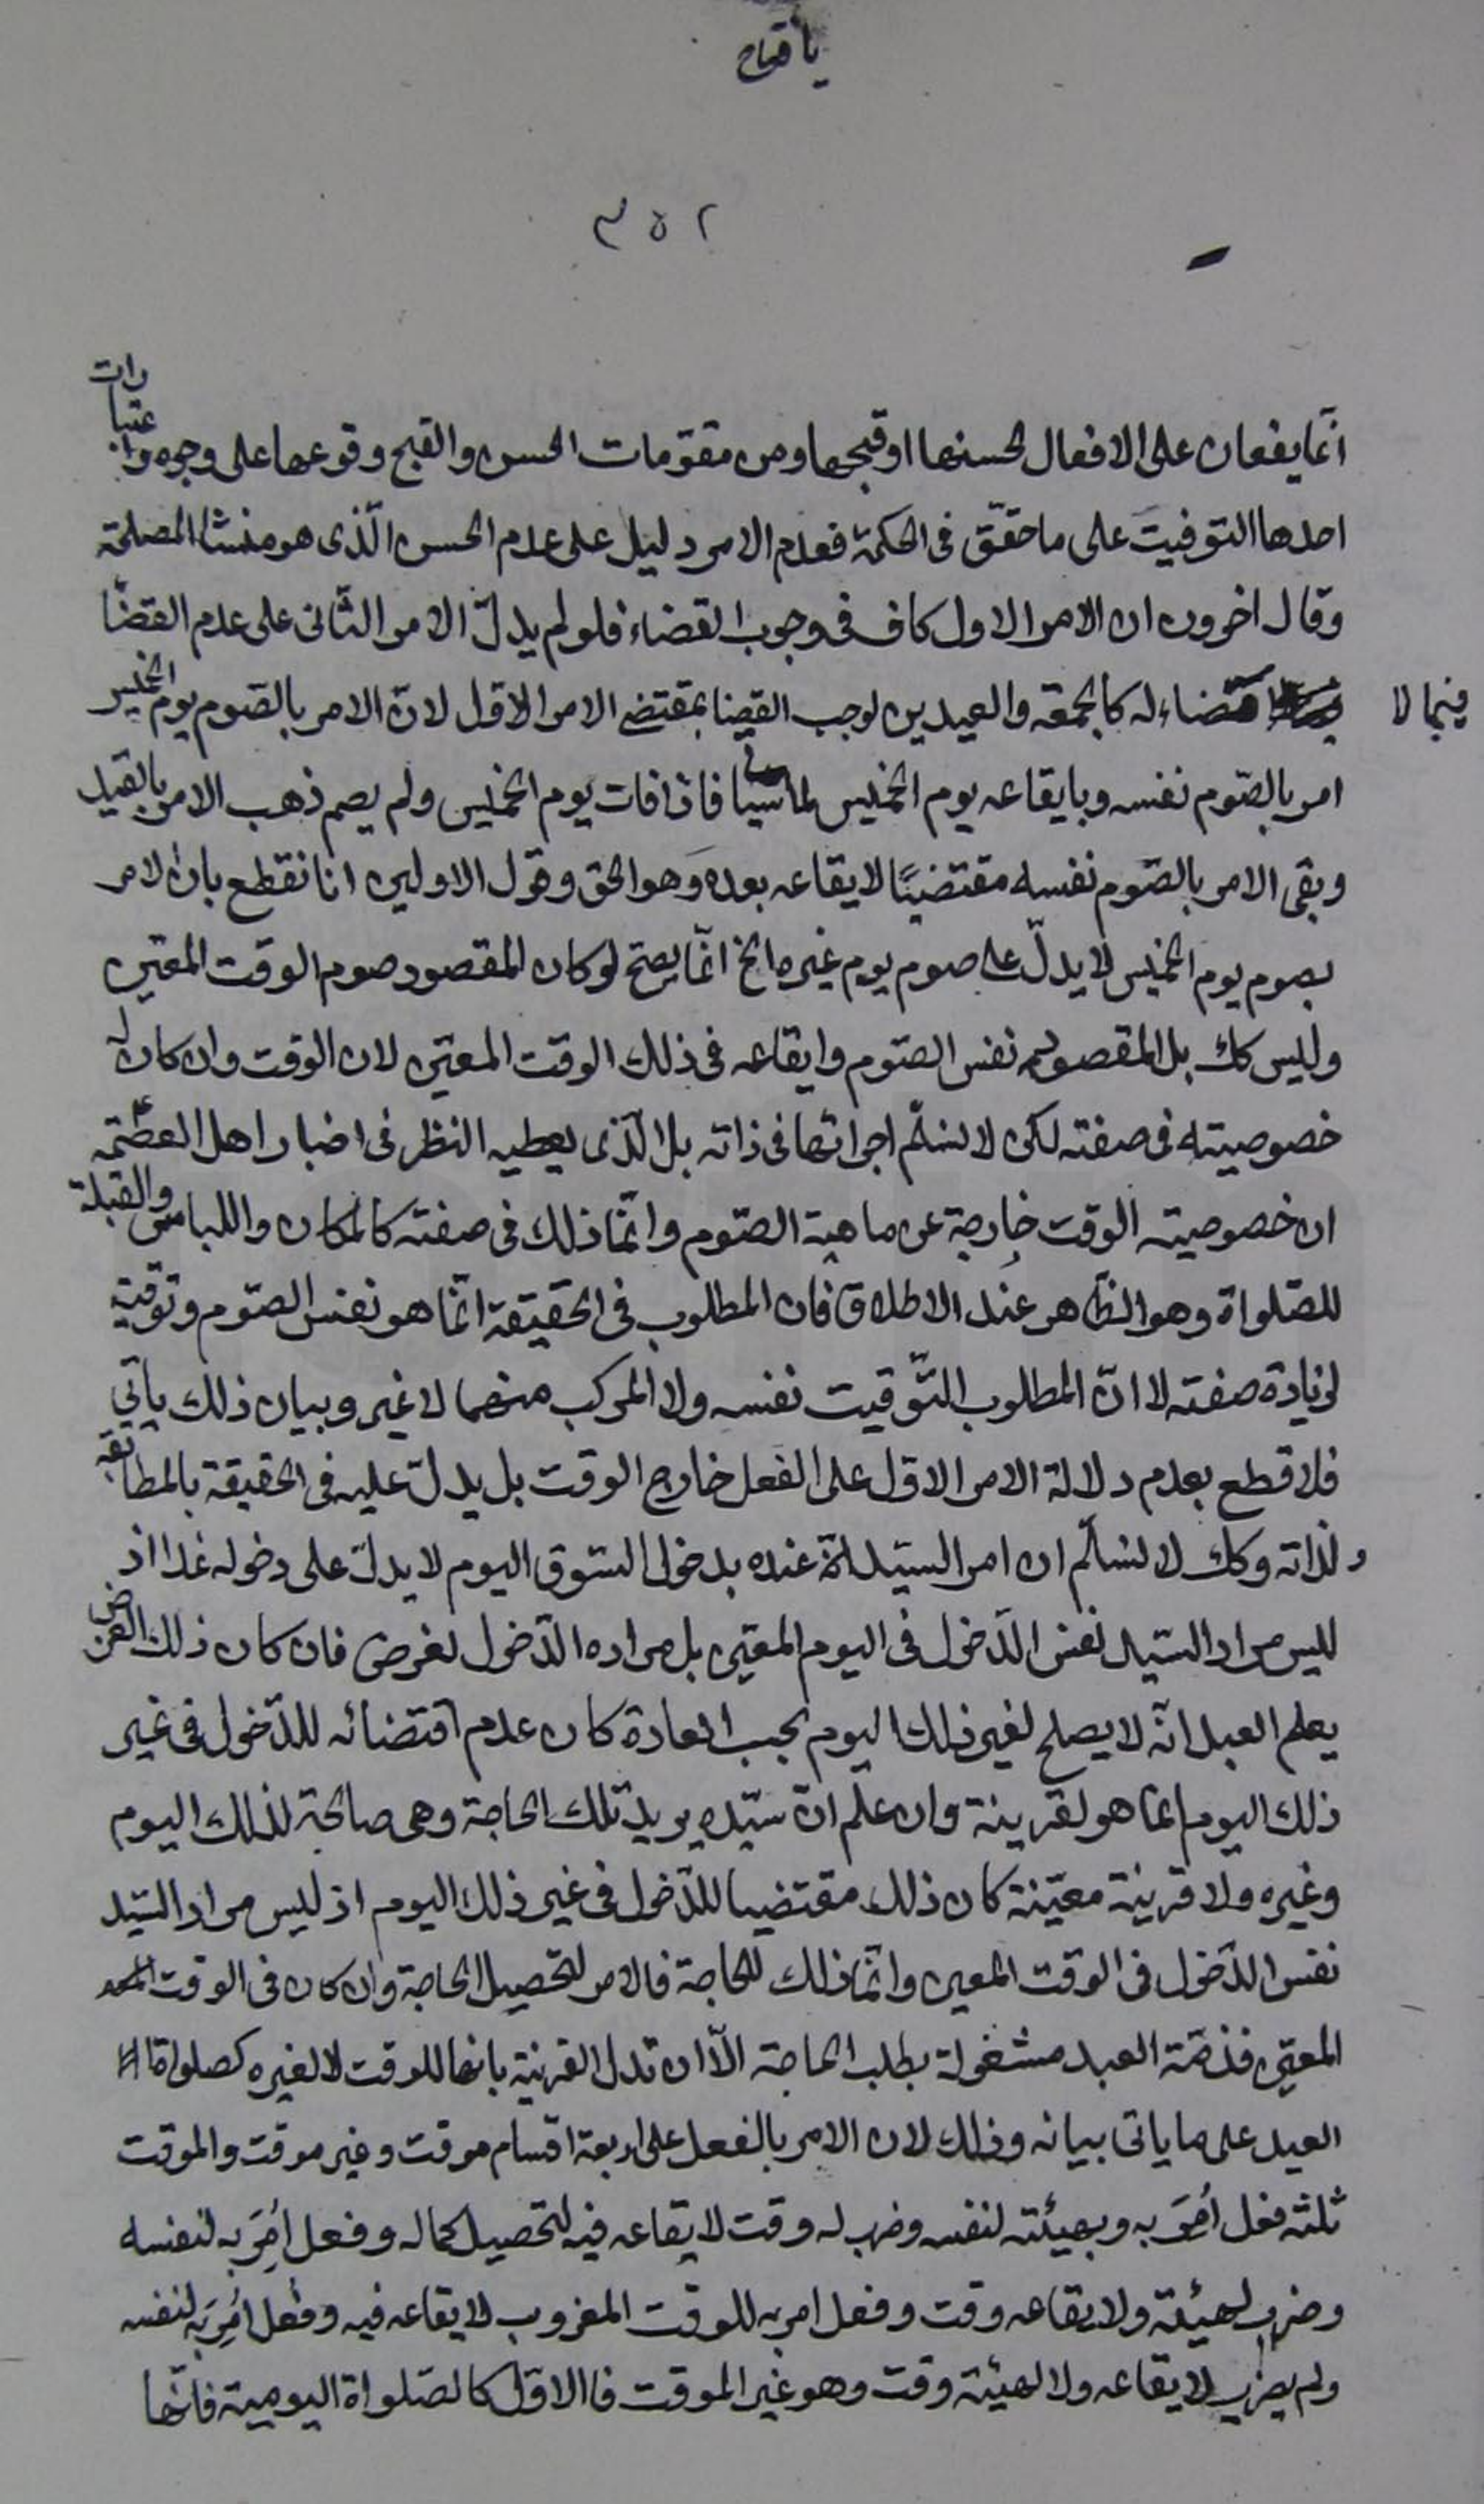 يا فتاح
٣٥٢
انّما يقعان على الافعال لحسنها او قبحها ومن مقوّمات الحسن والقبح وقوعها على وجوه واعتبارات
احدها التوقيت على ما حقّق فى الحكمة فعدم الامر دليل على عدم الحسن الّذى هو منشا المصلحة
وقال اخرون ان الامر الاول كاف فى وجوب القضاء فلو لم يدلّ الامر الثّانى على عدم القضا
فيما لا قضاء له كالجمعة والعيدين لوجب القضا بمقتضى الامر الاوّل لانّ الامر بالصّوم يوم الخميس
امر بالصّوم نفسه وبايقاعه يوم الخميس لما سيأتى فاذا فات يوم الخميس ولم يصم ذهب الامر بالقيد
وبقى الامر بالصّوم نفسه مقتضيًا لايقاعه بعده وهو الحق وقول الاولين انا نقطع بان الامر
بصوم يوم الخميس لا يدلّ على صوم يوم غيره الخ انّما يصحّ لو كان المقصود صوم الوقت المعيّن
وليس كك بل المقصود نفس الصّوم وايقاعه فى ذلك الوقت المعيّن لان الوقت وان كان له
خصوصيته فى صفته لكن لا نسلّم اجرائها فى ذاته بل الّذى يعطيه النظر فى اخبار اهل العصمة ع
ان خصوصية الوقت خارجة عن ماهية الصّوم وانّما ذلك فى صفته كالمكان واللباس والقبلة
للصّلواة وهو الظّاهر عند الاطلاق فان المطلوب فى الحقيقة انّما هو نفس الصّوم وتوقيته
لزيادة صفته لا انّ المطلوب التّوقيت نفسه ولا المركب منهما لا غير وبيان ذلك ياتى
فلا قطع بعدم دلالة الامر الاوّل على الفعل خارج الوقت بل يدلّ عليه فى الحقيقة بالمطابقة
ولذاته وكك لا نسلّم ان امر السيّد عنده بدخول السّوق اليوم لا يدلّ على دخوله غدا اذ
ليس مراد السّيد نفس الدّخول فى اليوم المعيّن بل مراده الدّخول لغرض فان كان ذلك الغرض
يعلم العبد انّه لا يصلح لغير ذلك اليوم بحسب العادة كان عدم اقتضائه للدّخول فى غير
ذلك اليوم انما هو لقرينة وان علم انّ سيّده يريد تلك الحاجة وهى صالحة لذلك اليوم
وغيره ولا قرينة معيّنة كان ذلك مقتضيا للدّخول فى غير ذلك اليوم اذ ليس مراد السّيد
نفس الدّخول فى الوقت المعين وانّما ذلك للحاجة فالامر لتحصيل الحاجة وان كان فى الوقت
المعيّن فذمّة العبد مشغولة بطلب الحاجة الّا ان تدل القرينة بانها للوقت لا لغيره كصلواة
العيد على ما ياتى بيانه وذلك لان الامر بالفعل على اربعة اقسام موقت وغير موقت والموقت
ثلثه فعل اُمِرَ به وبهيئته لنفسه وضرب له وقت لايقاعه فيه لتحصيل كماله وفعل اُمِرَ به لنفسه
وضرب لهيئته ولايقاعه وقت وفعل امر به للوقت المضروب لايقاعه فيه وفعل اُمِرَ به لنفسه
ولم يضرب لايقاعه ولا لهيئته وقت وهو غير الموقت فالاوّل كالصّلواة اليومية فانّها